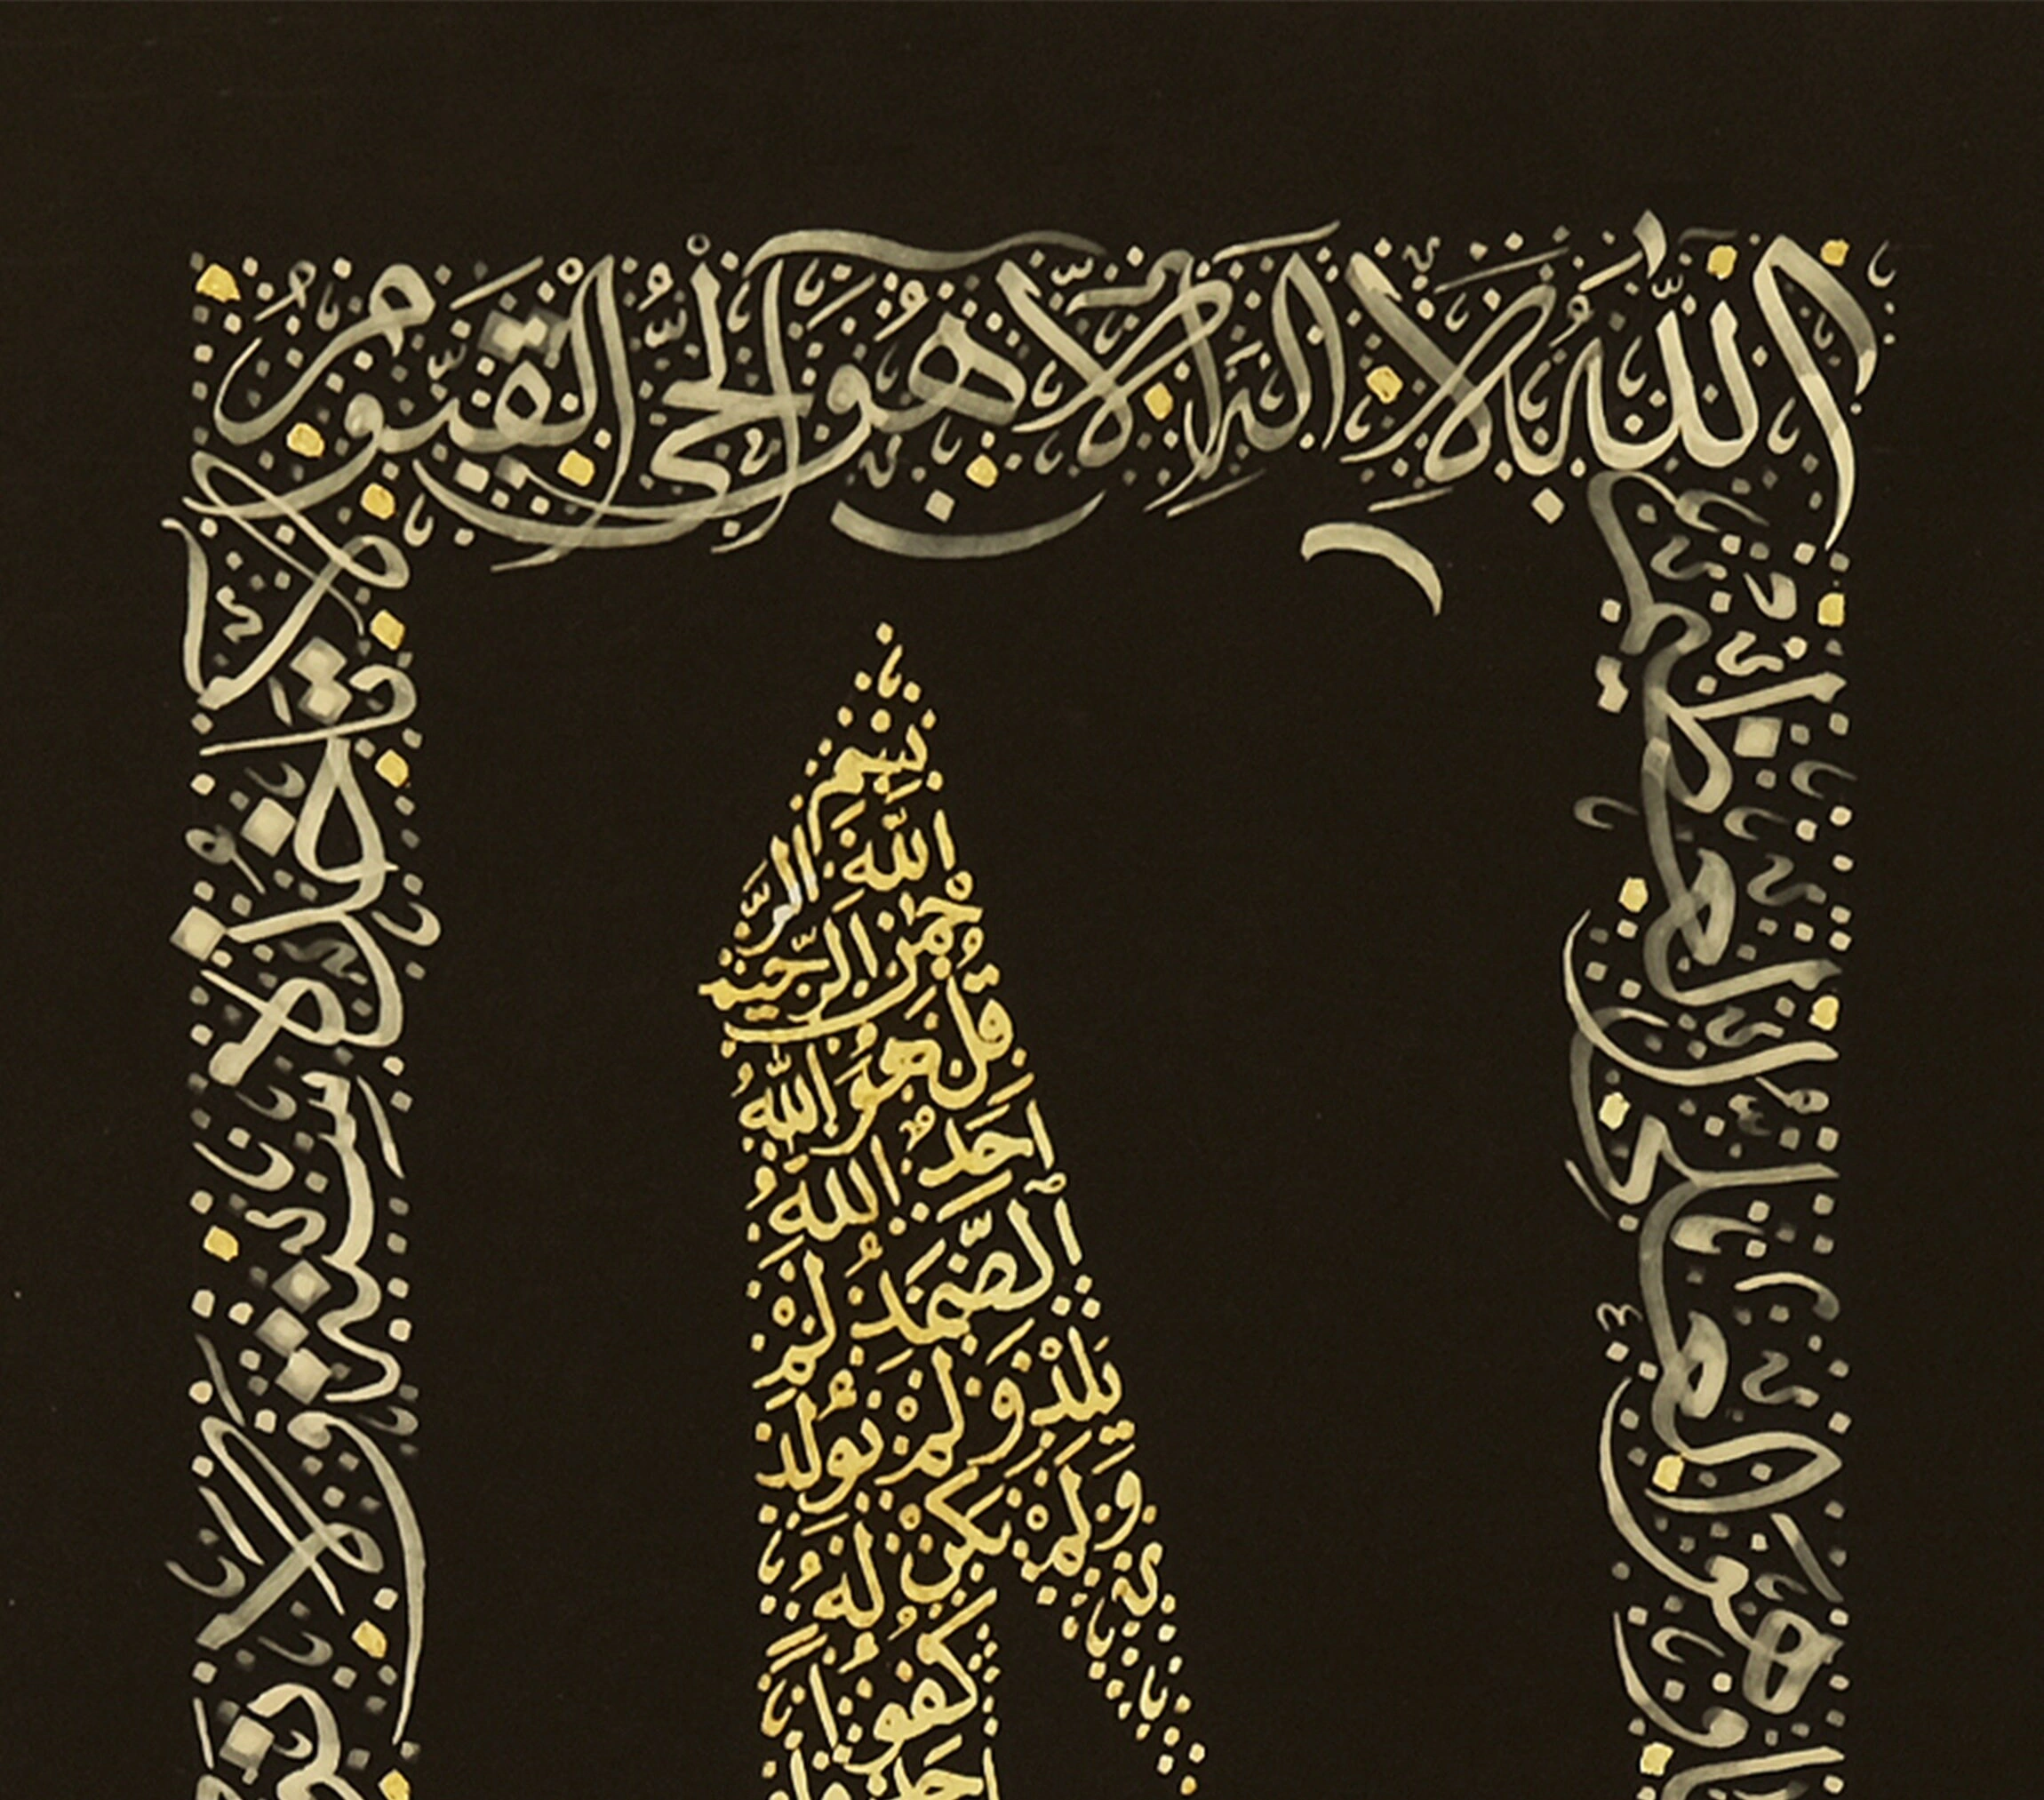 الله لا إله إلا هو الحي القيوم
لا تأخذه سنة ولا نوم
وهو العلي العظيم
بِسْمِ
اللَّهِ الرَّ
حْمٰنِ الرَّحِيمِ
قُلْ هُوَ اللَّهُ
أَحَدٌ اللَّهُ
الصَّمَدُ لَمْ
يَلِدْ وَلَمْ يُولَدْ
وَلَمْ يَكُنْ لَهُ
كُفُوًا
أَحَدٌ